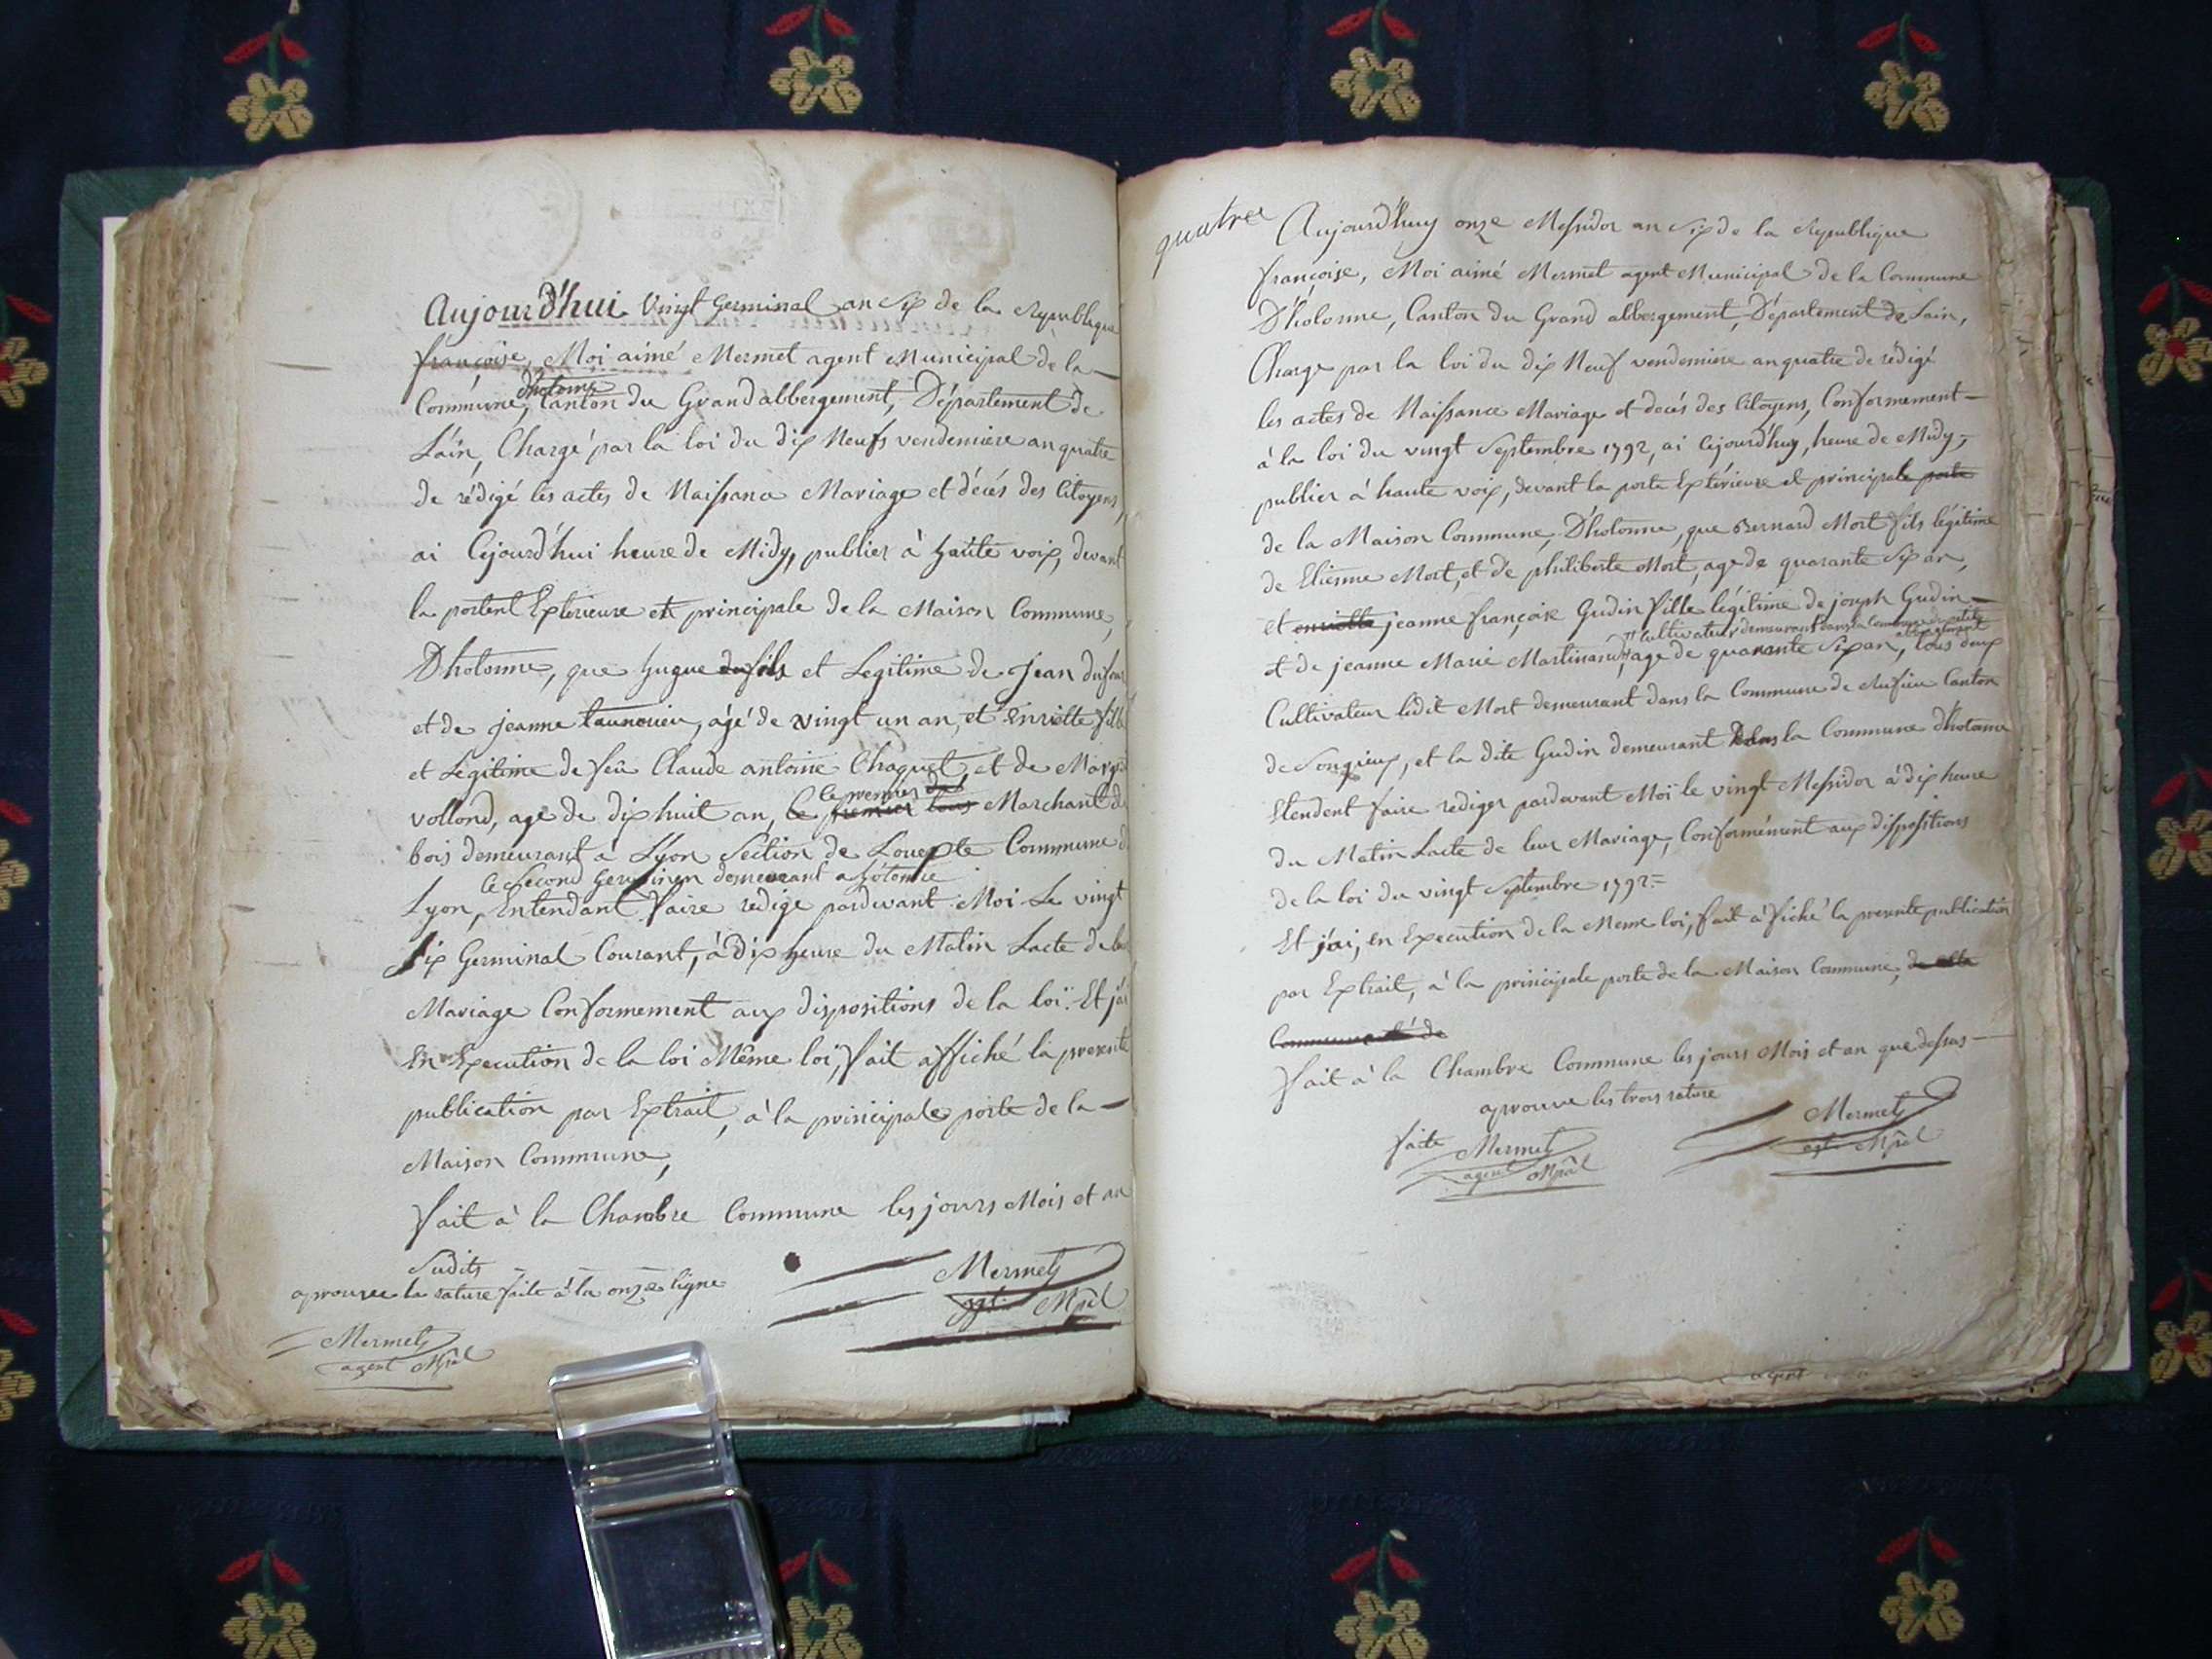 Aujourd'hui Vingt Germinal an Six de la Republique
françoise, Moi aimé Mermet agent Municipal de la
d'hotonne
Commune, Canton du Grand abbergement, Département de
Láin, Chargé par la loi du dix Neufs vendemiere an quatre
de rédigé les actes de Naissance Mariage et décés des Citoyens,
ai Cejourd'hui heure de Midy, publier à haute voix, devant
la portent Exterieure et principale de la Maison Commune,
D'hotonne, que hugue fils et Legitime de Jean dufour
et de jeanne, agé de vingt un an, et Enriette fille
et Légitime de feû Claude antoine Chaquet, et de
le premier
vollond, age de dix huit an, Ce premier tous Marchant de
bois demeurant a Lyon Section de Commune de
Ce Second demeurant a hotonne
Lyon, Entendant faire redige pardevant Moi Le vingt
Six Germinal Courant, à Dix heure du Matin Lacte de leur
Mariage Conformement aux dispositions de la loi. Et j'ai
En Execution de la loi Même loi, fait affiché la presente
publication par Extrait, à la principale porte de la
Maison Commune,
fait à la Chambre Commune les jours Mois et an
Sudits
aprouvee la rature faite à la onze ligne
Mermet
agt Mpâl
Mermet
agent Mpâl
quatre
Aujourd'huy onze Messidor an Six de la Republique
françoise, Moi aimé Mermet agent Municipal de la Commune
D'hotonne, Canton du Grand abbergement, Département de Lain,
Charge par la loi du dix Neuf vendemiere an quatre de rédigé
les actes de Naissance Mariage et decés des Citoyens, Conformement
à la loi du vingt Septembre 1792, ai Cejourd'huy, heure de Midy,
publier à haute voix, devant la porte Extérieure et principale porte
de la Maison Commune, D'hotonne, que Bernard Mort fils légitime
de Etienne Mort, et de philiberte Mort, age de quarante Six an,
et enriette jeanne françoise Gudin fille légitime de joseph Gudin
Cultivateur demeurant dans la Commune de petit
abbergement
et de jeanne Marie Martinand, age de quarante Six an, tous deux
Cultivateur ledit Mort demeurant dans la Commune de Rufieu Canton
de Songieux, et la dite Gudin demeurant dans la Commune d'hotonne
Etendent faire rediger pardevant Moi le vingt Messidor à dix heure
du Matin Lacte de leur Mariage, Conformément aux dispositions
de la loi du vingt Septembre 1792.=
Et j'ai, en Execution de la Meme loi, fait à fiché la presente publication
par Extrait, à la principale porte de la Maison Commune, de
Commune de
fait à la Chambre Commune les jours Mois et an que dessus
aprouve les trois rature
faite
Mermet
agent Mpâl
Mermet
agt Mpâl